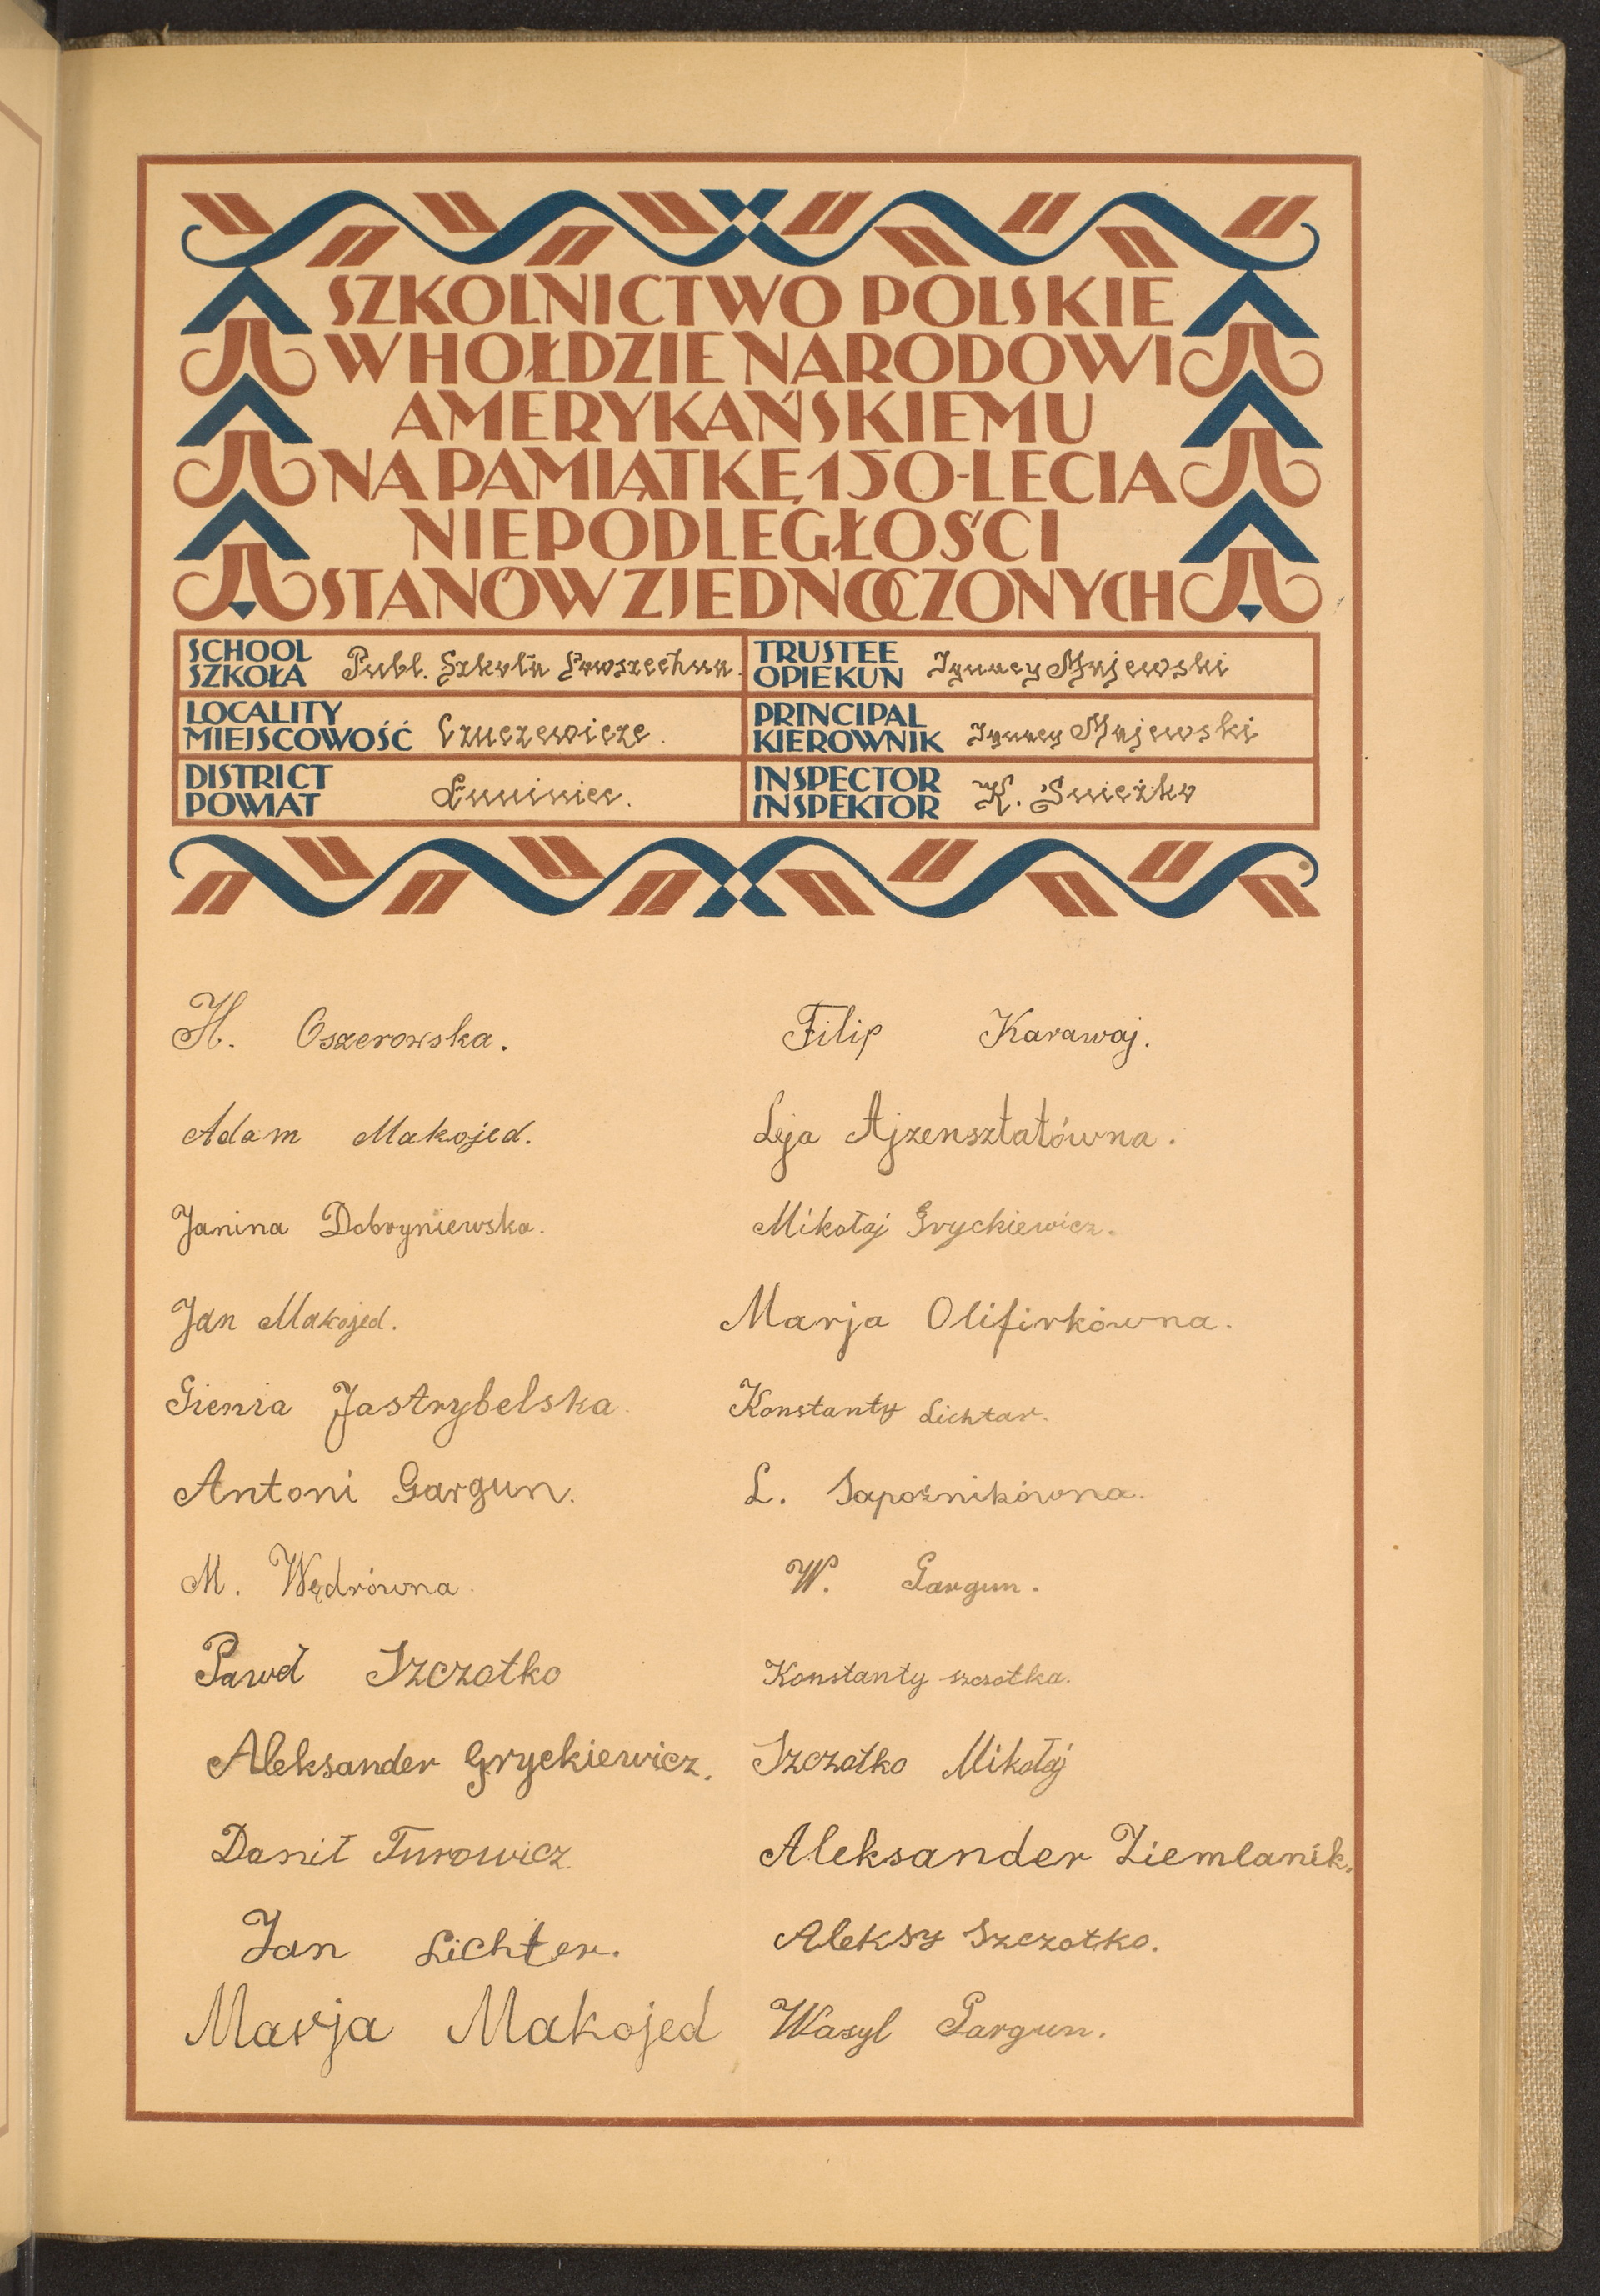 SZKOLNICTWO POLSKIE
W HOŁDZIE NARODOWI
AMERYKAŃSKIEMU
NA PAMIĄTKĘ 150-LECIA
NIEPODLEGŁOŚCI
STANÓW ZJEDNOCZONYCH
SCHOOL
SZKOŁA Publ. Szkoła Powszechna.
TRUSTEE
OPIEKUN Ignacy Majewski
LOCALITY
MIEJSCOWOŚĆ Czuczewicze.
PRINCIPAL
KIEROWNIK Ignacy Majewski
DISTRICT
POWIAT Łuniniec.
INSPECTOR
INSPEKTOR K. Śnieżko
H. Oszerowska.
Adam Makojed.
Janina Dobryniewska.
Jan Makojed.
Gienia Jastrybelska.
Antoni Gargun.
M. Wędrówna.
Paweł Szczotko
Aleksander Gryckiewicz.
Danił Turowicz.
Jan Lichter.
Marja Makojed
Filip Karawaj.
Leja Ajzensztatówna.
Mikołaj Gryckiewicz.
Marja Olifirkówna.
Konstanty Lichtar.
L. Sapożnikówna.
W. Gargun.
Konstanty szczotka.
Szczotko Mikołaj
Aleksander Ziemlanik.
Aleksy Szczotko.
Wasyl Gargun.